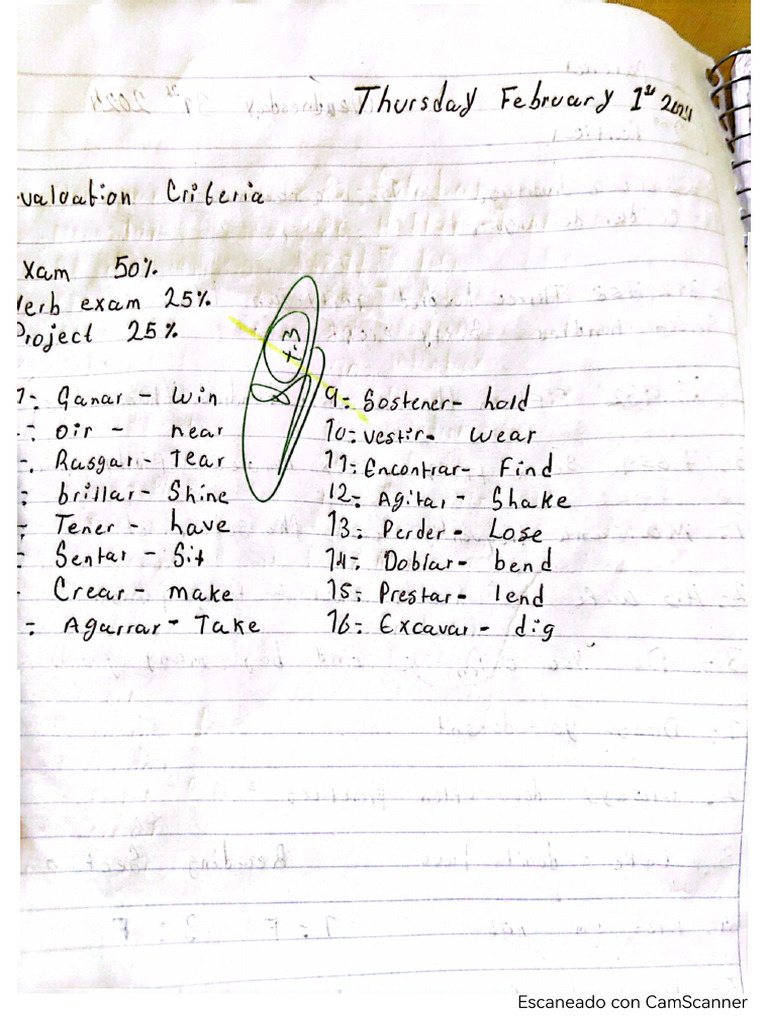 Thursday February 1st 2024
valuation Criteria
xam 50%
Verb exam 25%
Project 25%
1-: Ganar - Win
-: oir - near
-: Rasgar - Tear
: brillar - Shine
-: Tener - have
: Sentar - Sit
- Crear - make
-: Agarrar - Take
9-: Sostener - hold
10-: vestir - wear
11-: Encontrar - Find
12-: Agitar - Shake
13-: Perder - Lose
14-: Doblar - bend
15-: Prestar - lend
16-: Excavar - dig
Escaneado con CamScanner